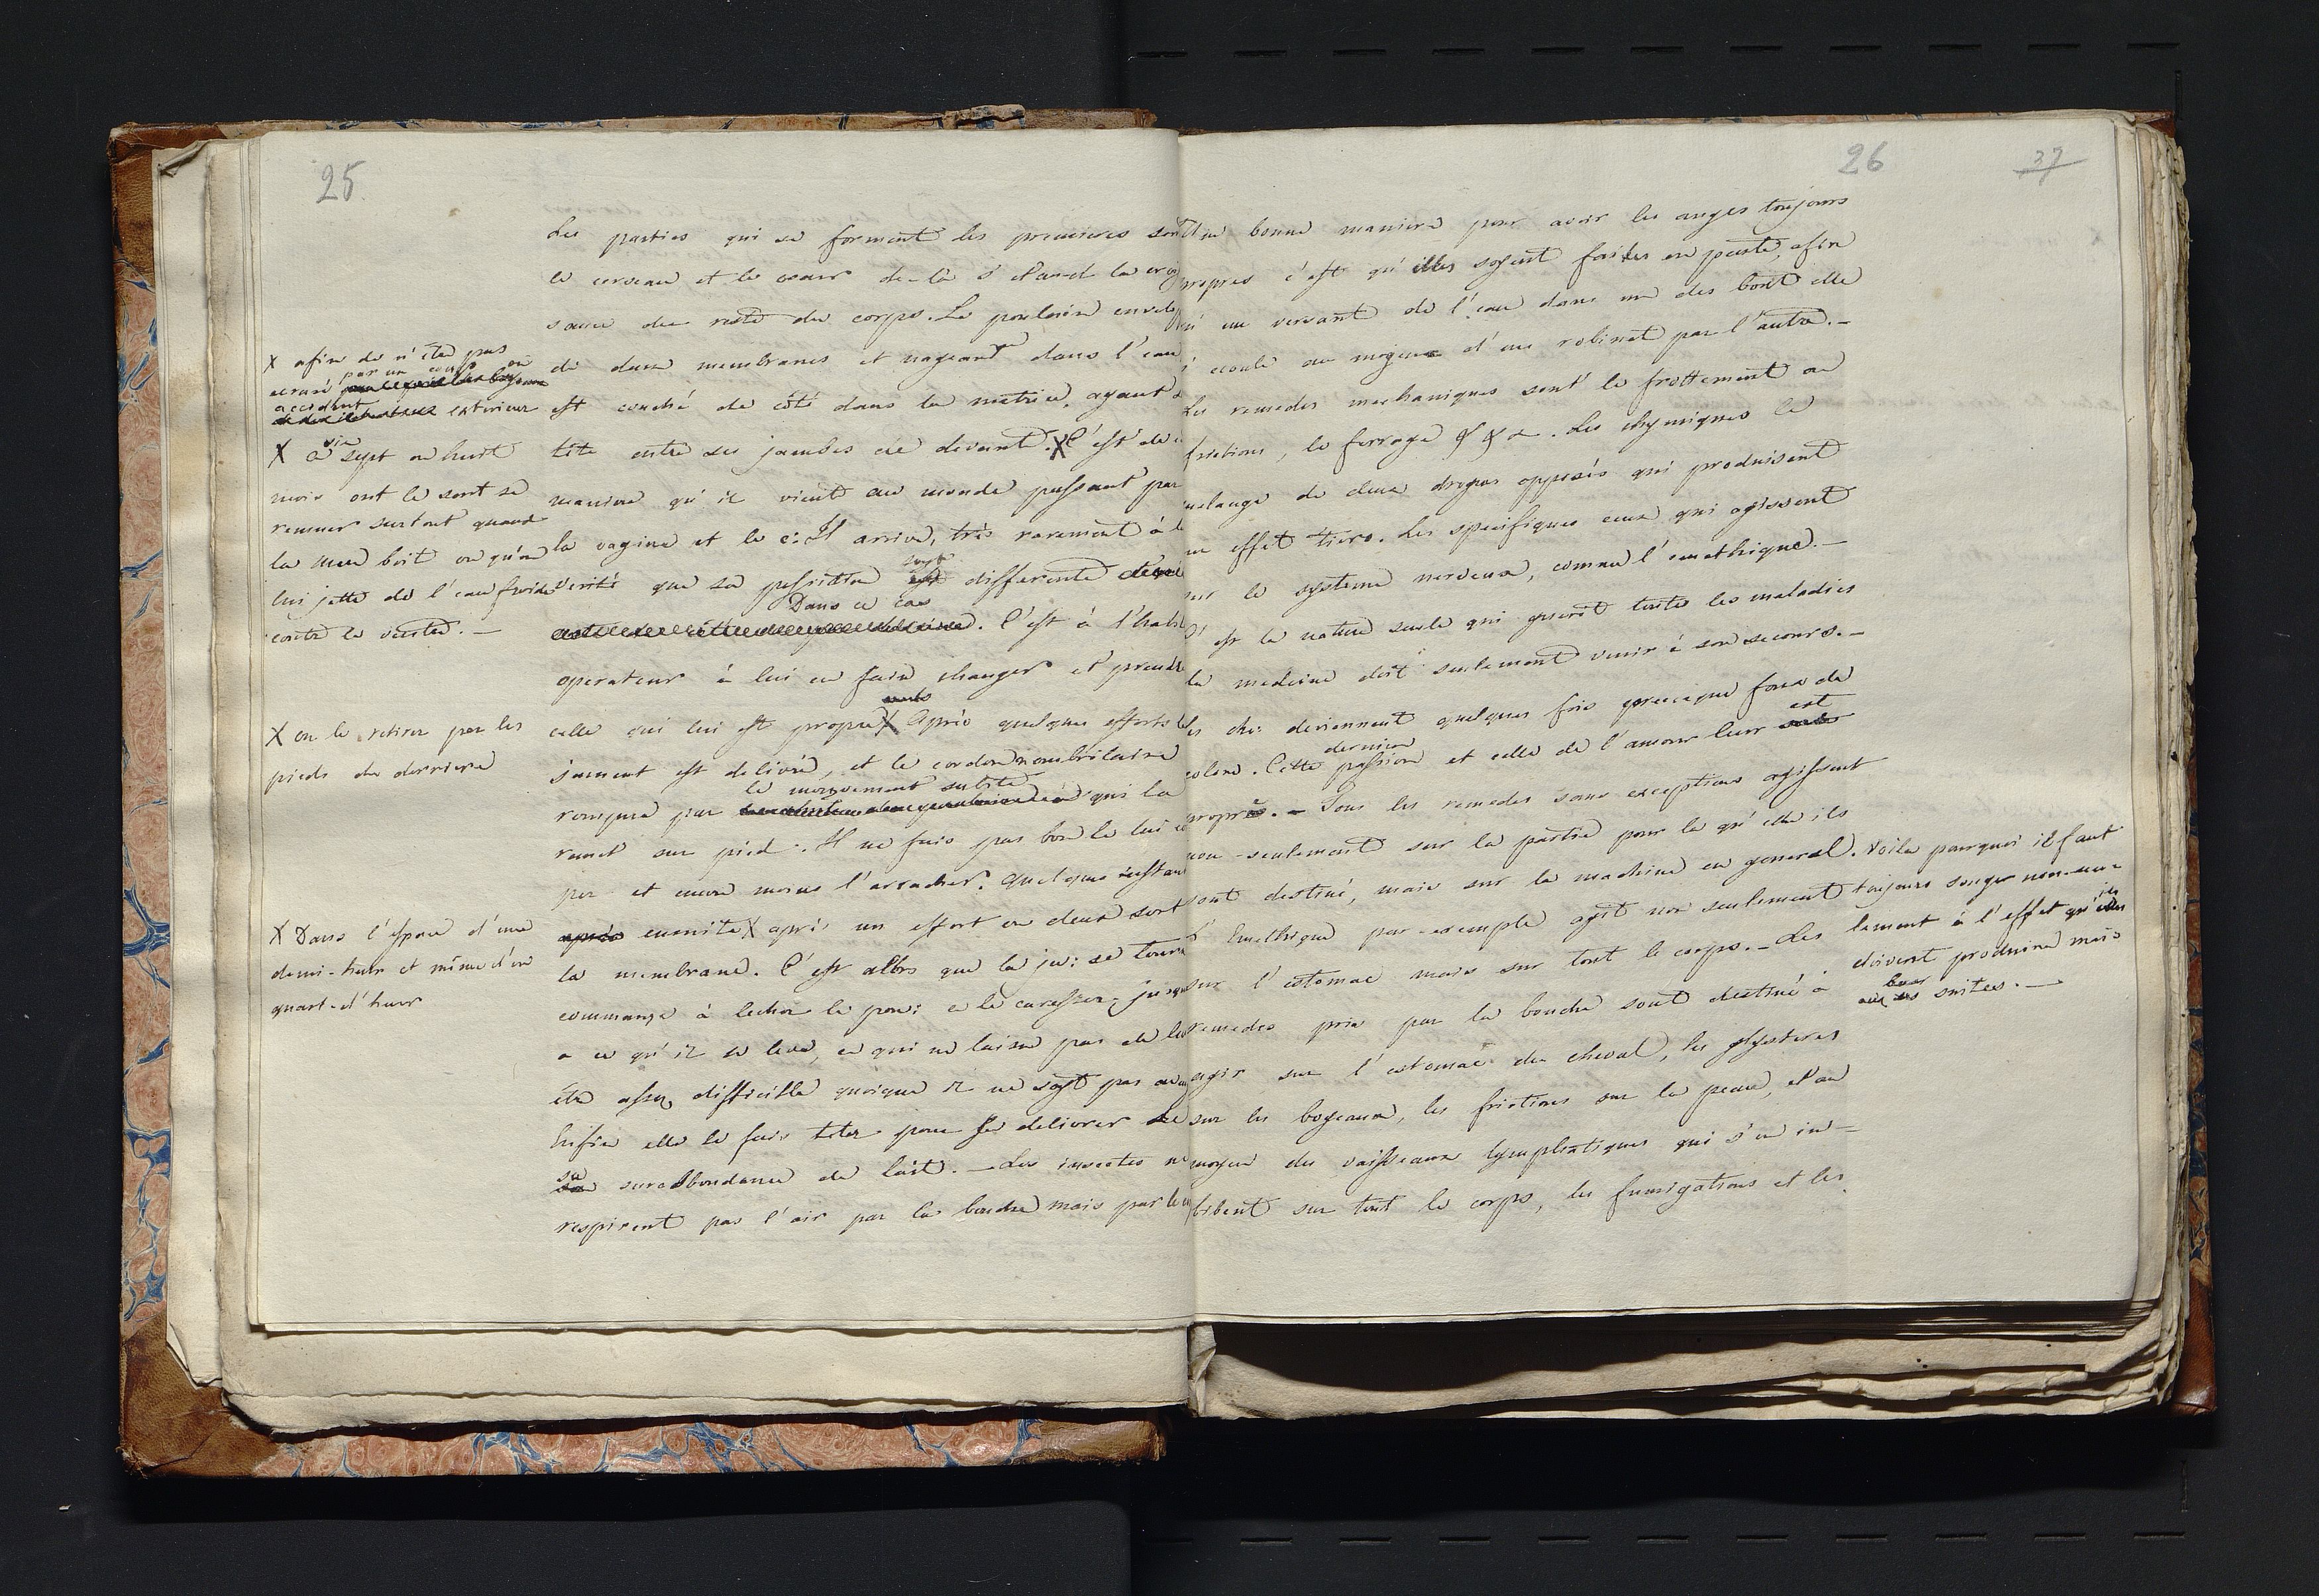 25
Les parties qui se forment les premieres sont
le cerveau et le coeur de-là s'étand la crois
sance du reste du corps. Le poulain envelop
dé deux membranes et nageant dans l'eau
est couché de côté dans la matrice, ayant
tête entre ses jambes de devant. X C'est de
maniere qu'il vient au monde passant par
la vagine et le c: Il arrive, très rarement à la
verité que sa position soyt differente
Dans ce cas
C'est à l'habil
operateur à lui en faire changer et prendre
celle qui lui est propre X Après quelques efforts la
jument est delivré, et le cordon nombrilaire
le mouvement subite
rompue par qui la
remet sur pied. Il ne fais pas bon le lui
per et encore moins l'arracher. Quelque instant
après ensuite X après un effort ou deux sort
la membrane. C'est alors que la ju: se tourne
commançe à lecher le pou: a le caresser, jusqu
a ce qu'il se leve, ce qui ne laisse pas de lui
être assez difficille quoique il ne soyt pas
Enfin elle le fais teter pour se delivrer de
sa surabbondance de lait. — Les insectes ne
respirent pas l'air par la bouche mais par le
X afin de n'être pas
ecrasé par un coup ou
accident exterieur
X à sept ou huit
mois ont le sent se
remuer surtout quand
la mere boit ou qu'on
lui jette de l'eau froide
contre le ventre. —
X on le retire par les
pieds de derriere
X Dans l'espace d'une
demi-heure et même d'un
quart-d'heure
26
37
Une bonne maniere pour avoir les auges toujours
propres c'est qu'elles soyent faites en pente, afin
qu'en versant de l'eau dans un des bout elle
s'ecoule au moyen d'un robinet par l'autre. —
Les remedes mechaniques sont le frottement ou
frictions, le ferrage & & &. Les chymiques le
melange de deux drogues opposés qui produisent
un effet tiers. Les specifiques ceux qui agissent
sur le systeme nerveux, comme l'emethique. —
C'est la nature seule qui guerit toutes les maladies
la medecine doit seulement venir à son secours. —
Les che: deviennent quelques fois presque foux de
colere. Cette derniere passion et celle de l'amour leur est
propre. — Tous les remedes sans exceptions agissent
non-seulement sur la partie pour la qu'elle ils
sont destiné, mais sur la machine en general.
L'Emethique par-exemple agit non seulement
sur l'estomac mais sur tout le corps. — Les
remedes pris par la bouche sont destiné à
agir sur l'estomac du cheval, les glysteres
sur les boyeaux, les frictions sur la peau, et au
moyen des vaisseaux lymphatiques qui s'en in-
bibent sur tout le corps, les fumigations et les
Voila pourquoi il faut
toujours songer non-seu-
lement à l'effet qu'ils
doivent produire mais
aux leur suites. —